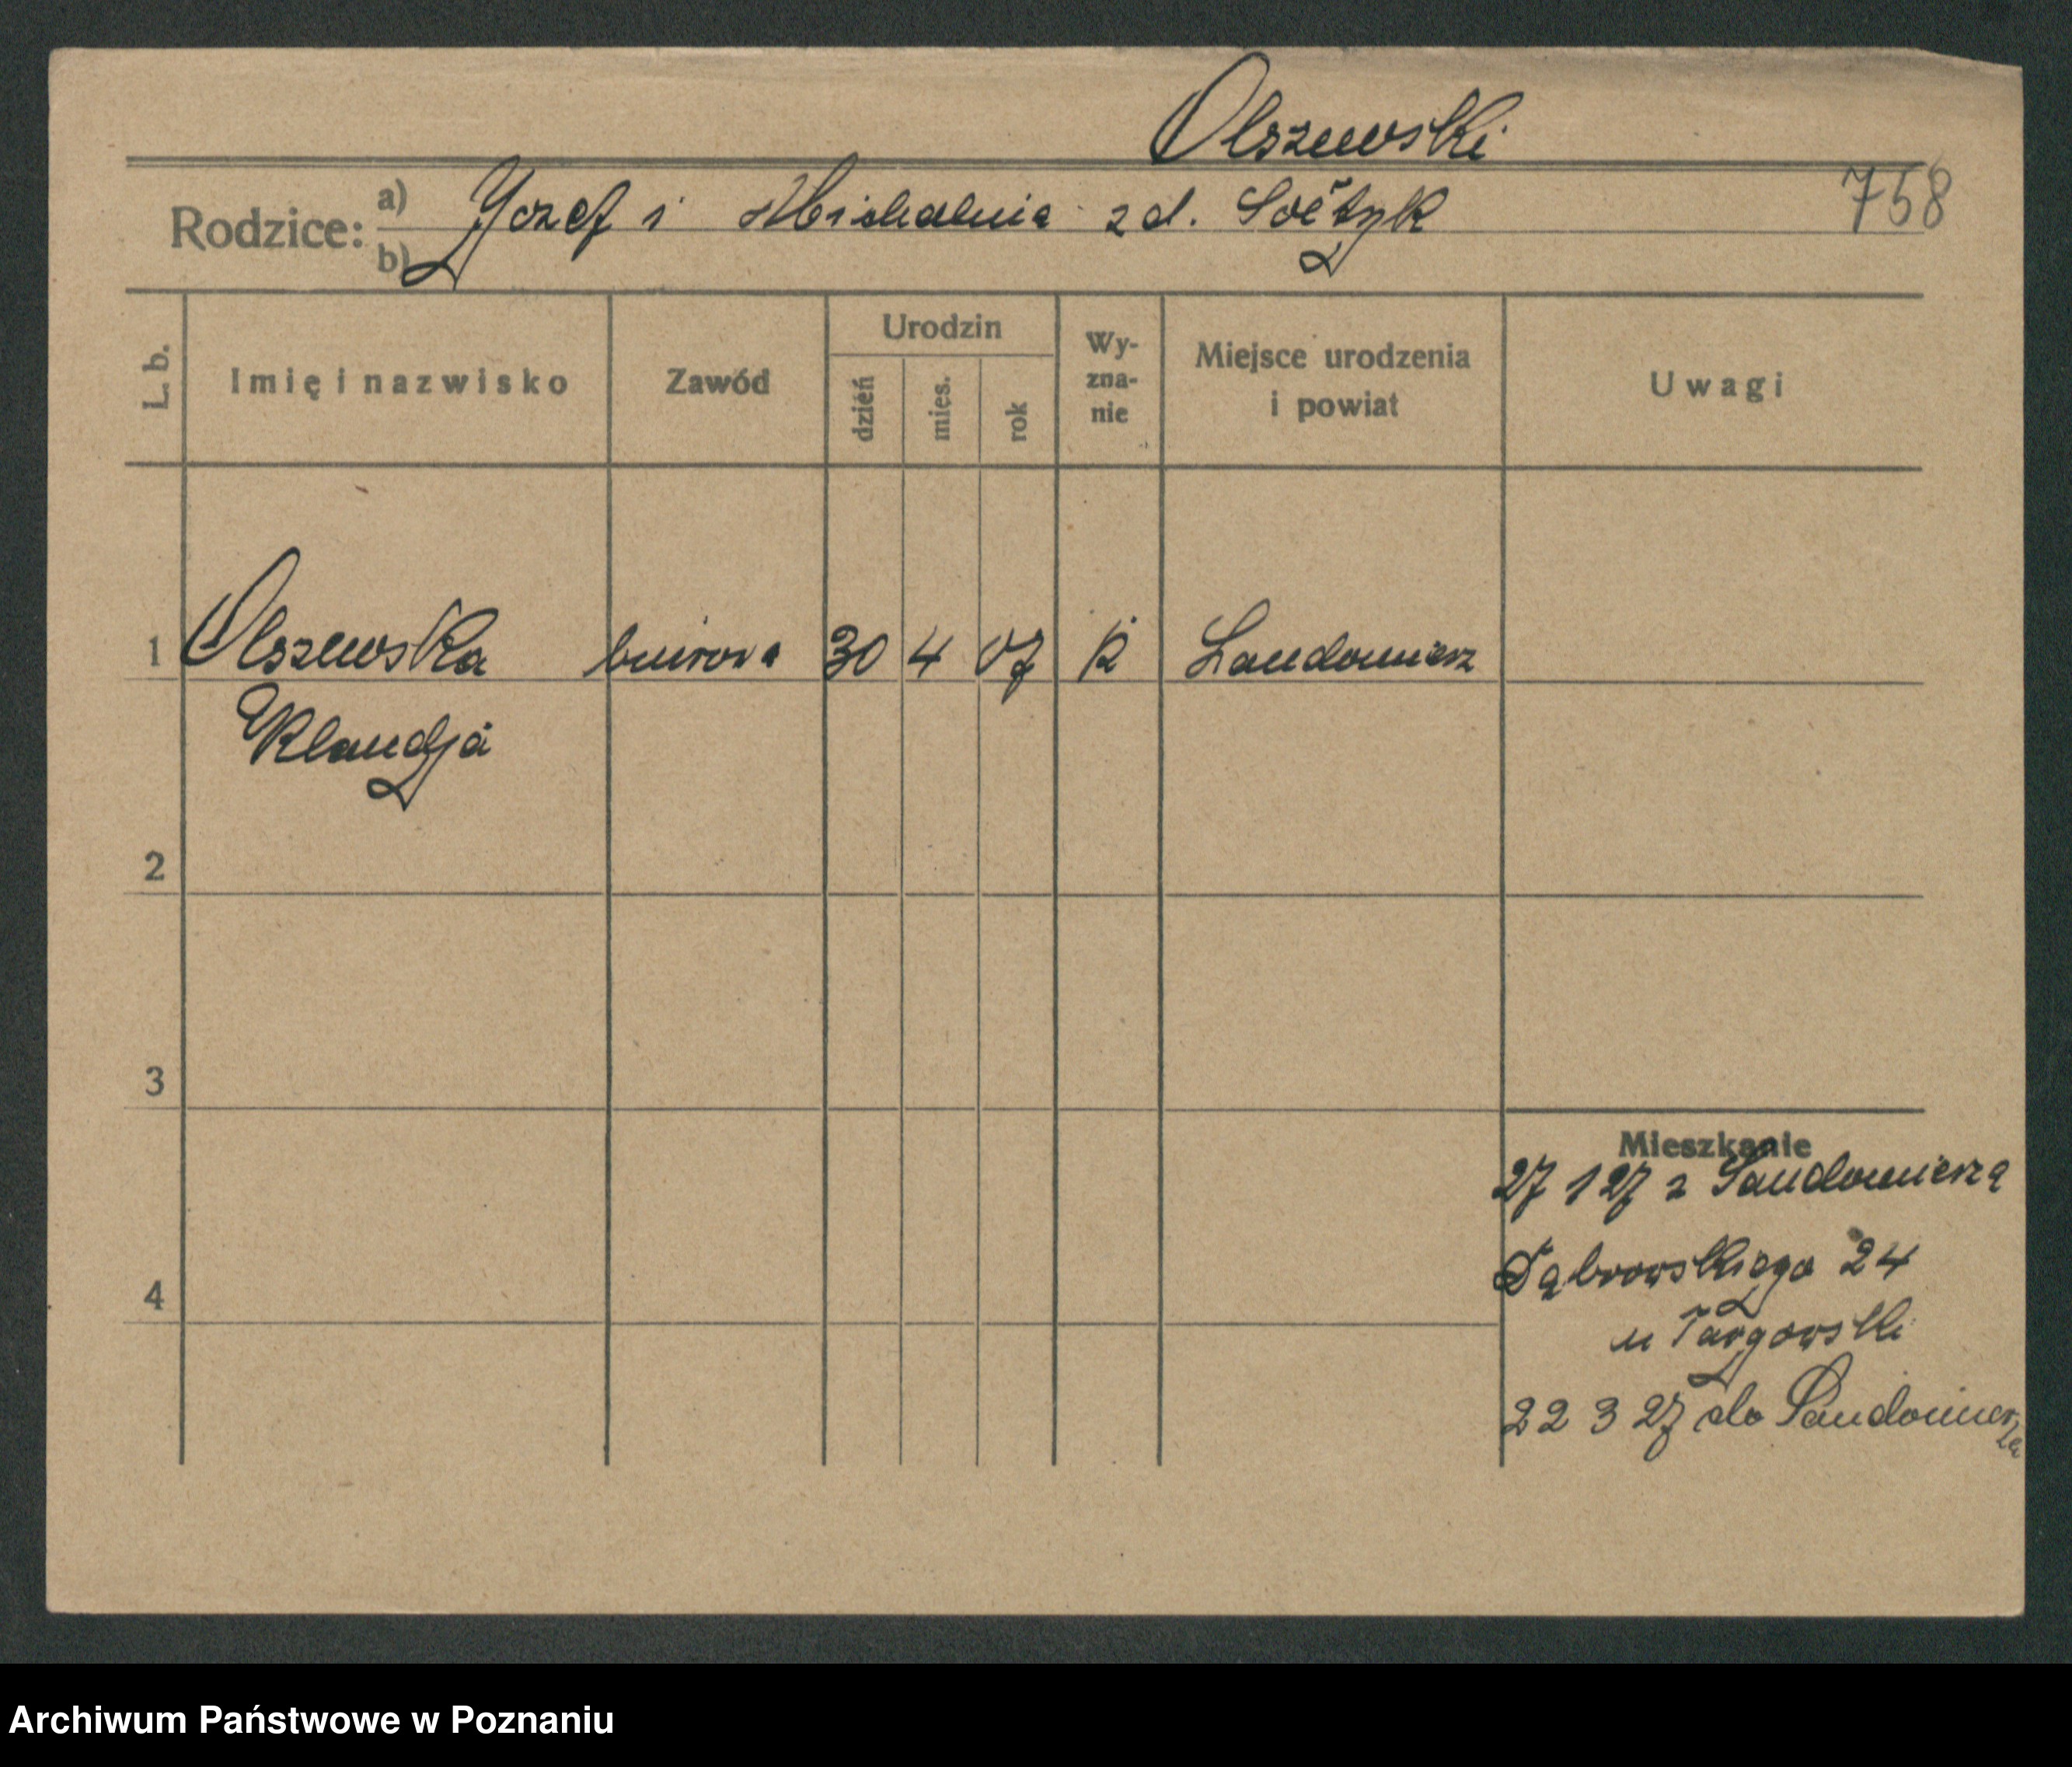 Olszewski
758
Rodzice: a) Józef i Michalina z d. Sołtyk
b)
L. b.
Imię i nazwisko
Zawód
Urodzin
dzień
mies.
rok
Wy-
zna-
nie
Miejsce urodzenia
i powiat
Uwagi
1 Olszewska biurowa 30 4 07 k Sandomierz
Klaudja
2
3
4
Mieszkanie
27 1 27 z Sandomierza
Dąbrowskiego 24
u Targowski
22 3 27 do Sandomierza
Archiwum Państwowe w Poznaniu